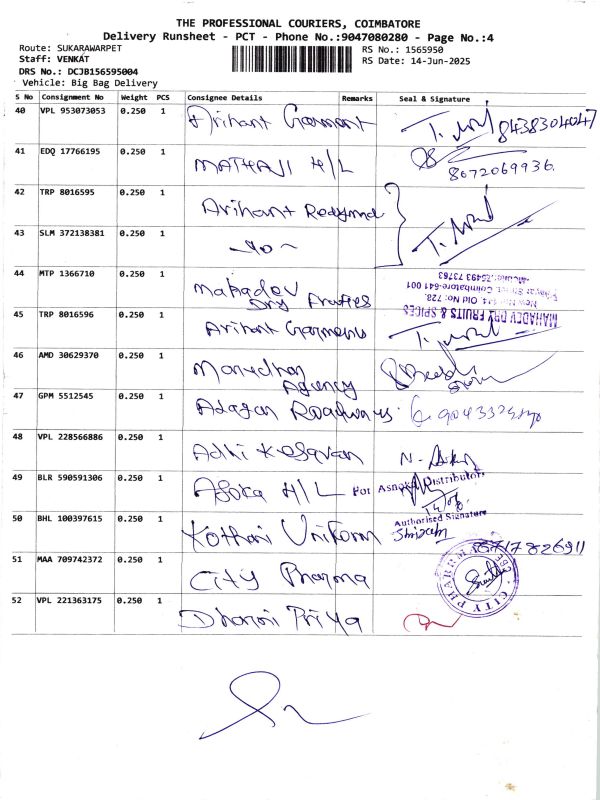 THE PROFESSIONAL COURIERS, COIMBATORE
Delivery Runsheet - PCT - Phone No.:9047080280 - Page No.:4
Route: SUKARAWARPET
RS No.: 1565950
Staff: VENKAT
RS Date: 14-Jun-2025
DRS No.: DCJB156595004
Vehicle: Big Bag Delivery
S No Consignment No Weight PCS Consignee Details Remarks Seal & Signature
40 VPL 953073053 0.250 1 Arihant Garment 8438304047
41 EDQ 17766195 0.250 1 MATHAJI H/L 8072069936
42 TRP 8016595 0.250 1 Arihant Redymad
43 SLM 372138381 0.250 1 -do-
44 MTP 1366710 0.250 1 Mahadev Dry Fruties
MAHADEV DRY FRUITS & SPICES
Old No: 728,
Street, Coimbatore-641 001
45 TRP 8016596 0.250 1 Arihant Garments
46 AMD 30629370 0.250 1 Agency
47 GPM 5512545 0.250 1 Alagar Roadways
48 VPL 228566886 0.250 1 Adhi Kesavan
49 BLR 590591306 0.250 1 Asoka H/L
For Asnoka Distributors
Authorised Signature
50 BHL 100397615 0.250 1 Kothari Uniform
51 MAA 709742372 0.250 1 City Pharma
CITY PHARMA
52 VPL 221363175 0.250 1 Dharni Priya